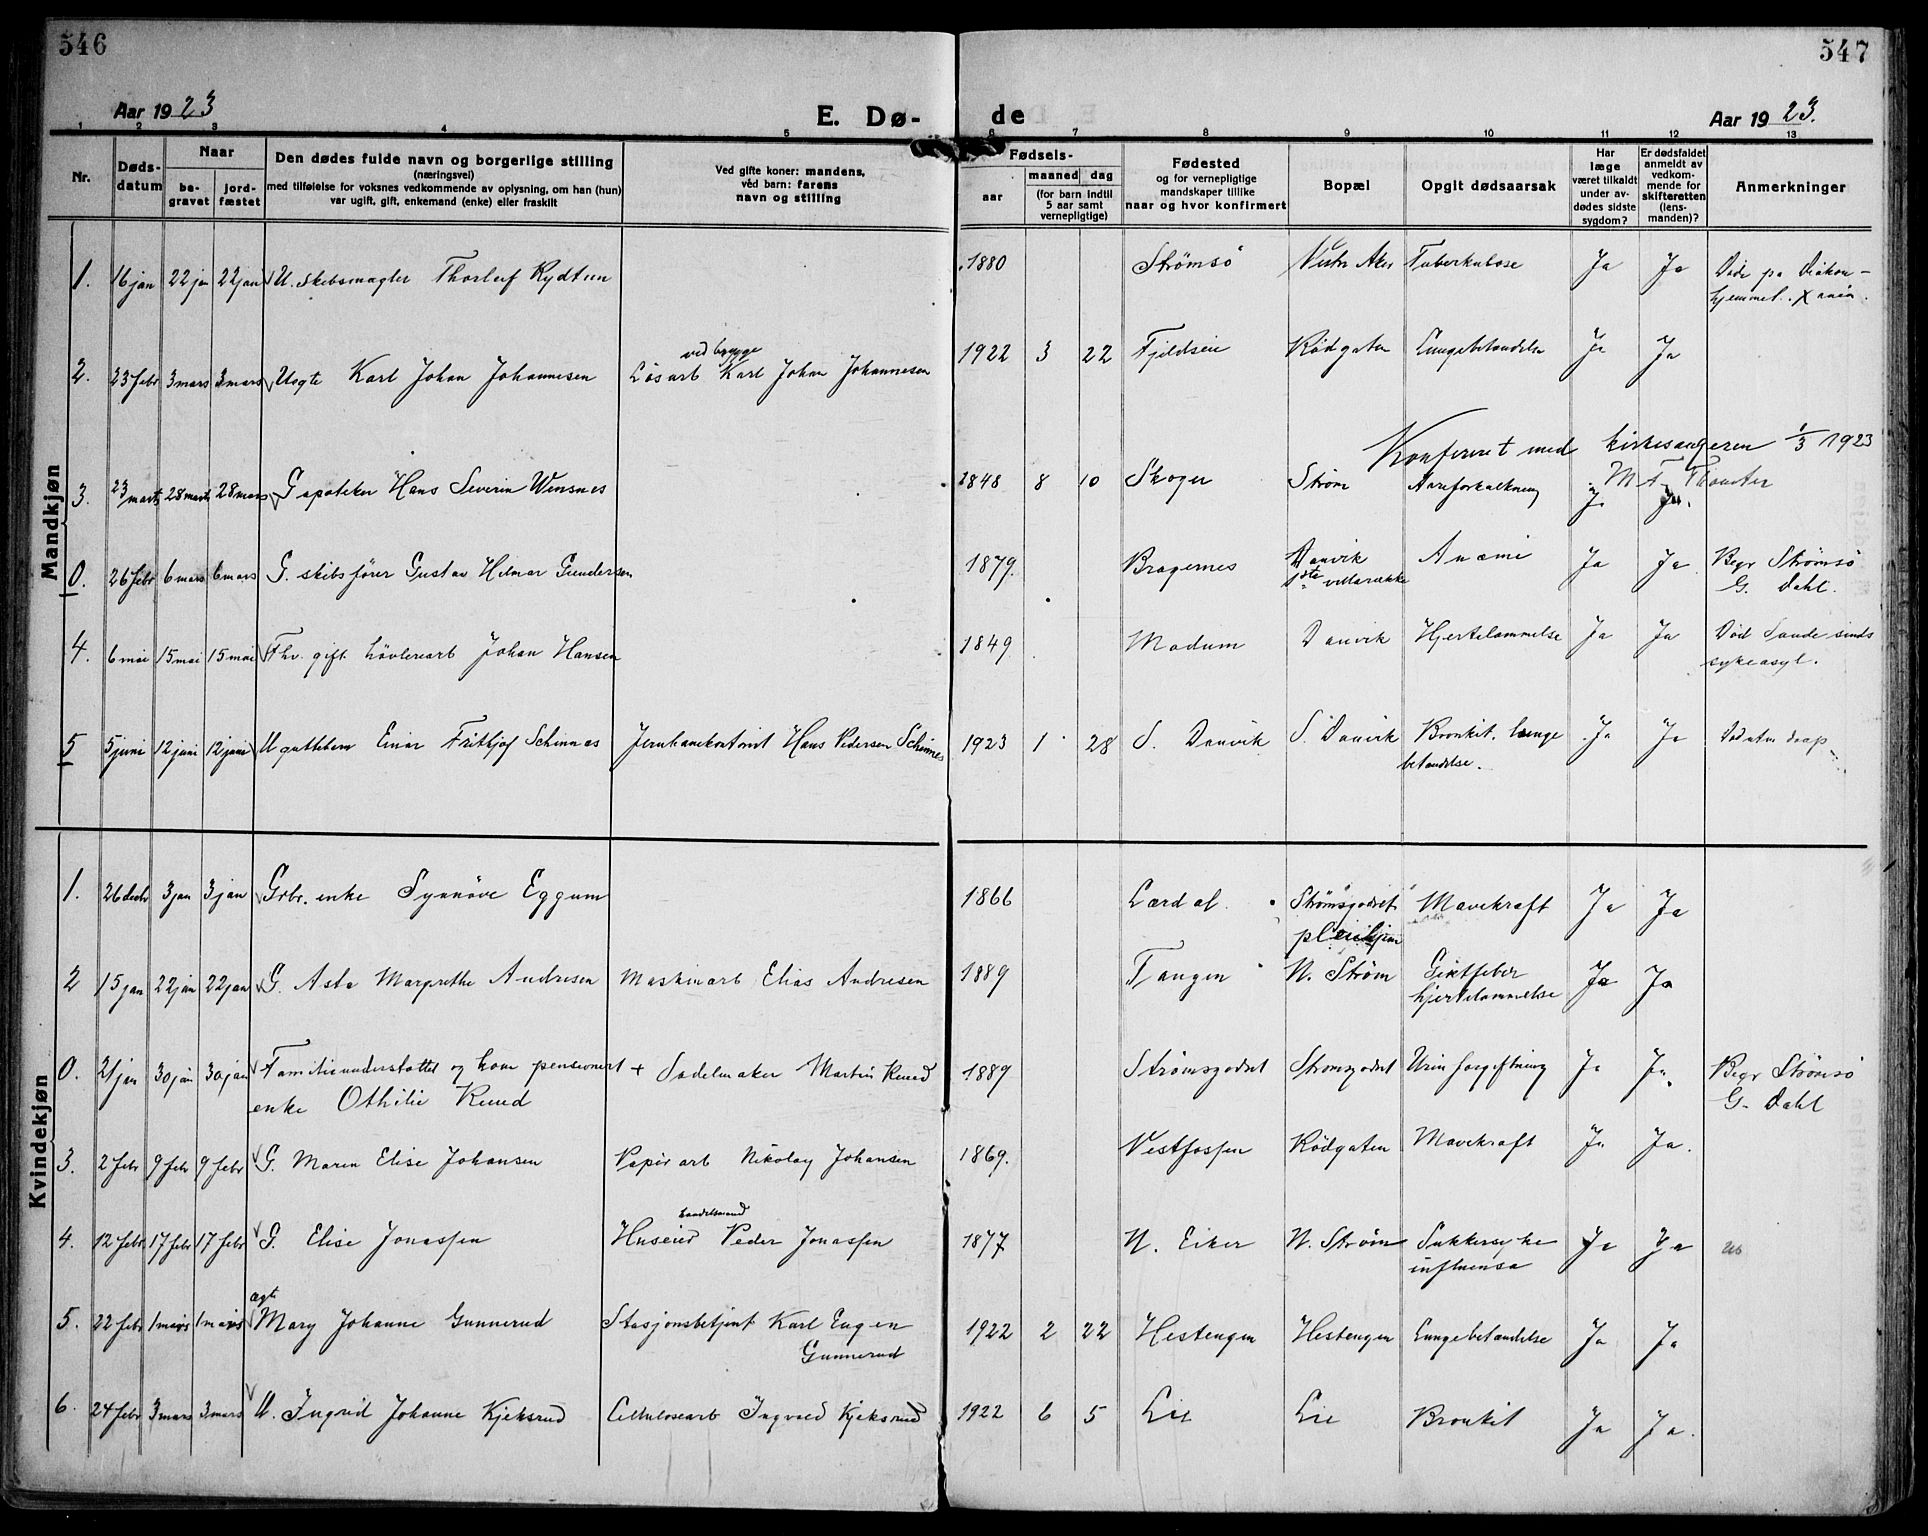 546
547
Aar 1923
E. Dø-
de
Aar 1923.
1 2 3 4 5 6 7 8 9 10 11 12 13
Nr.
Døds-
datum
Naar
be-
gravet
jord-
fæstet
Den dødes fulde navn og borgerlige stilling
(næringsvei)
med tilføielse for voksnes vedkommende av oplysning, om han (hun)
var ugift, gift, enkemand (enke) eller fraskilt
Ved gifte koner: mandens,
ved barn: farens
navn og stilling
Fødsels-
aar
maaned dag
(for barn indtil
5 aar samt
vernepligtige)
Fødested
og for vernepligtige
mandskaper tillike
naar og hvor konfirmert
Bopæl
Opgit dødsaarsak
Har
læge
været tilkaldt
under av-
dødes sidste
sygdom?
Er dødsfaldet
anmeldt av
vedkom-
mende for
skifteretten
(lens-
manden)?
Anmerkninger
Mandkjøn
1. 16 jan 22 jan 22 jan U. skibsmægler Thorleif Rydtun 1880 Strømsø Vestre Aker Tuberkulose Ja Ja Død på Diakon-
hjemmet. Xania.
ved brygge
2. 23 febr 3 mars 3 mars Uegte Karl Johan Johannesen Løsarb Karl Johan Johannesen 1922 3 22 Fjeldseie Rødgaten Lungebetændelse Ja Ja
Konferert med kirkesangeren 1/3 1923
M F
3. 23 mars 28 mars 28 mars G apoteker Hans Severin Wensnes 1848 8 10 Skoger Strøm Aareforkalkning Ja Ja.
0. 26 febr 6 mars 6 mars G. skibsfører Gustav Hilmar Gundersen 1879. Bragernes Danvik Anæmi Ja Ja Begr Strømsø
1ste villarække G. Dahl.
4. 6 mai 15 mai 15 mai Fhv. gift høvlerarb Johan Hansen 1849 Modum Danvik Hjertelammelse Ja Ja Død Sande sinds
sykeasyl.
5 5 juni 12 juni 12 juni U guttebarn Einar Frithjof Schinnes Jernbanekontorist Hans Pedersen Schinnes 1923 1 28 S. Danvik S. Danvik Bronkit. lunge Ja Ja
betændelse.
Kvindekjøn
1. 26 decbr 3 jan 3 jan Grbr. enke Synnøve Eggum 1866 Lærdal. Strømsgodset Mavekræft Ja Ja
2 15 jan 22 jan 22 jan G. Asta Margrethe Andresen Maskinarb Elias Andresen 1889 Tangen N. Strøm Giktfeber Ja Ja
hjertelammelse
0. 21 jan 30 jan 30 jan Familieunderstøttet og kom pensionert + Sadelmaker Martin Ruud 1889 Strømsgodset Strømsgodset Urinforgiftning Ja Ja Begr Strømsø
enke Othilie Ruud G. Dahl
3. 2 febr 9 febr 9 febr G. Maren Elise Johansen Papirarb Nikolay Johansen 1869. Vestfossen Rødgaten Mavekræft Ja Ja.
4. 12 febr 17 febr 17 febr G. Elise Jonassen Huseier Peder Jonassen 1877 N. Eiker N. Strøm Sukkersyke Ja Ja
influensa
Ægte
5. 22 febr 1 mars 1 mars Mary Johanne Gunnerud Stasjonsbetjent Karl Eugen 1922 2 22 Hestengen Hestengen Lungebetændelse Ja Ja
Gunnerud
6. 24 febr 3 mars 3 mars U. Ingrid Johanne Kjeksrud Cellulosearb Ingvald Kjeksrud 1922 6 5 Lie Lie Bronkit Ja Ja.